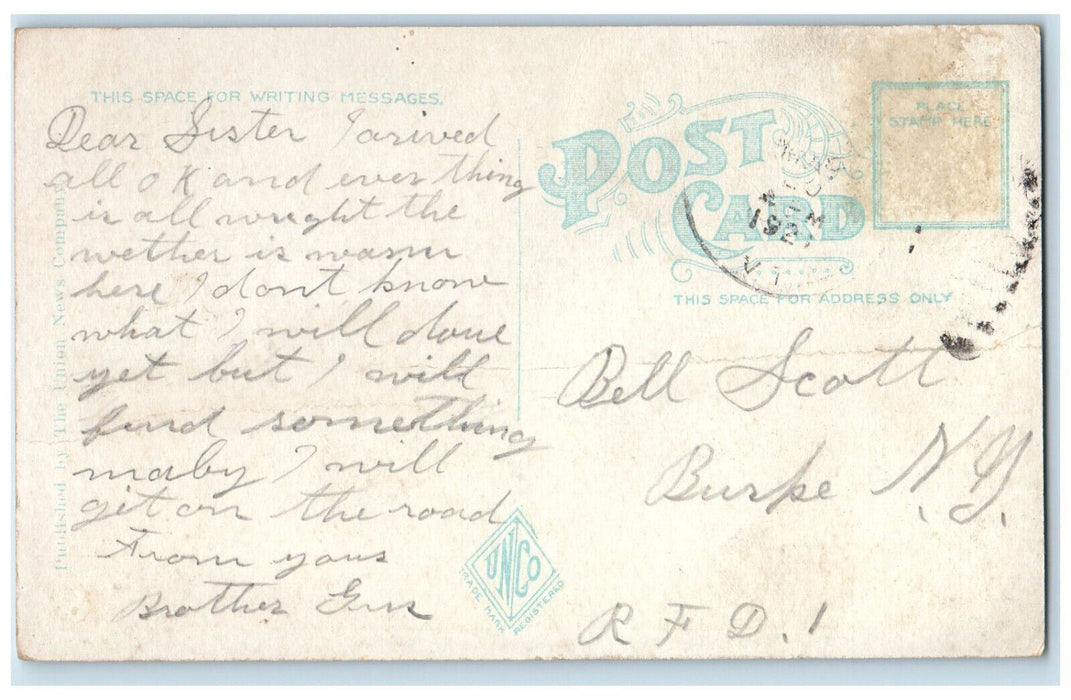 THIS SPACE FOR WRITING MESSAGES.
Dear Sister I arived
all O K and ever thing
is all wright the
wether is warm
here I dont know
what I will done
yet but I will
find something
maby I will
get on the road
From yous
Brother Gus
Published by The Union News Company
POST CARD
PLACE
STAMP HERE
192
V T
THIS SPACE FOR ADDRESS ONLY
Bell Scott
Burke N.Y.
R F D. 1
UNCO
TRADE MARK REGISTERED